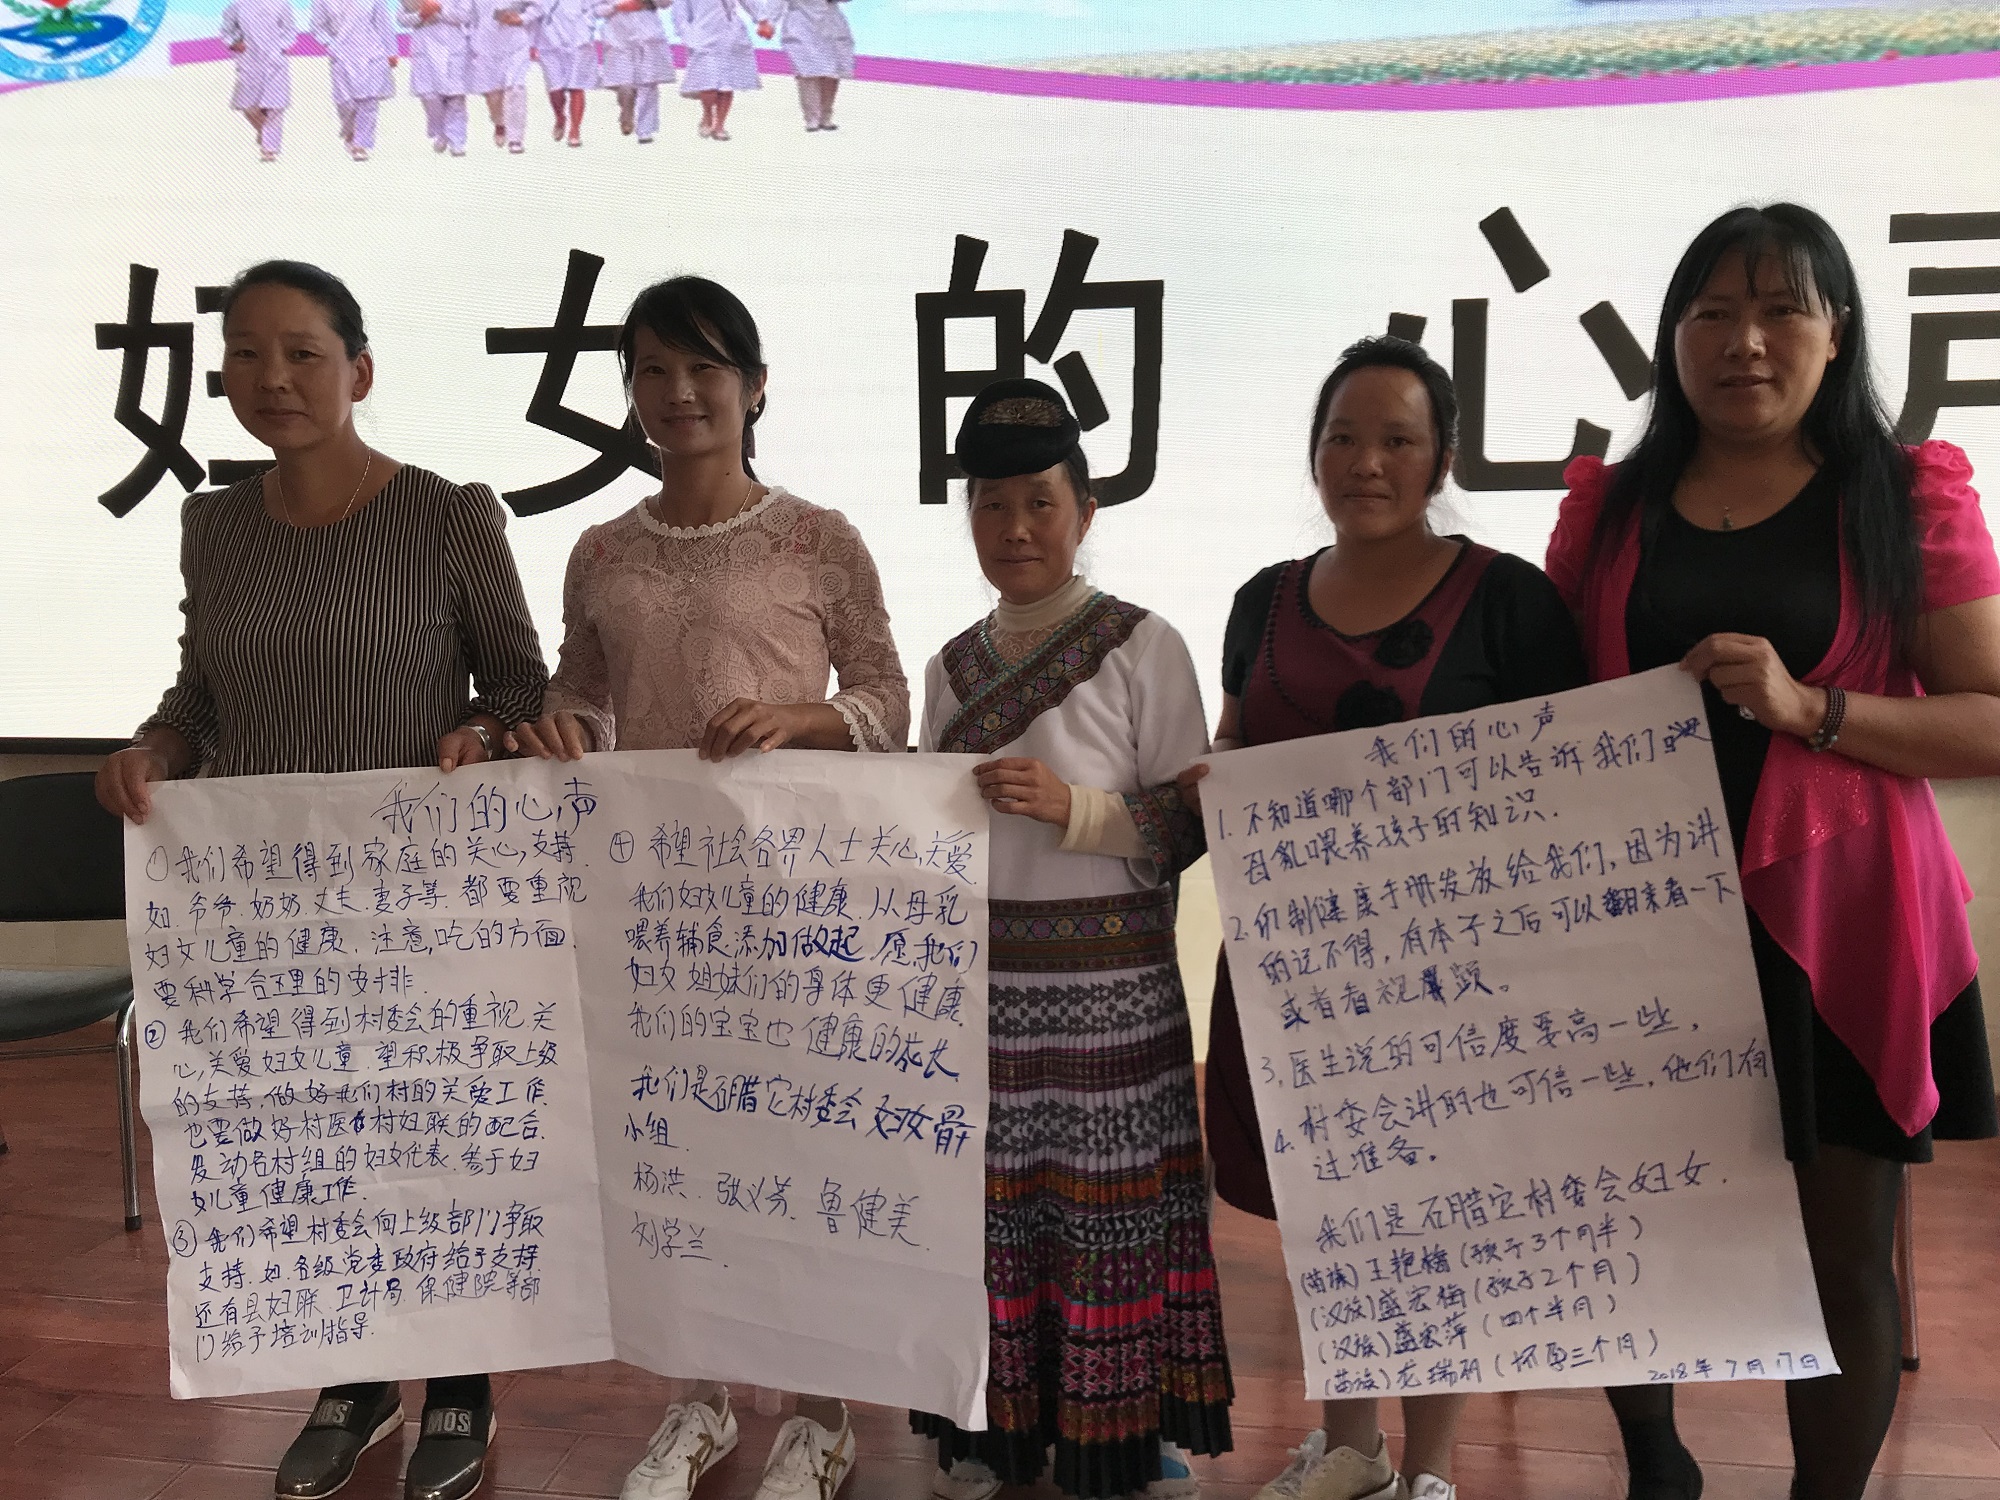 妇女的心声
我们的心声
① 我们希望得到家庭的关心,支持.
如.爷爷.奶奶.丈夫.妻子等.都要重视
妇女儿童的健康.注意,吃的方面.
要科学合理的安排.
② 我们希望得到村委会的重视.关
心,关爱妇女儿童.望积极争取上级
的支持.做好我们村的关爱工作.
也要做好村医村妇联的配合.
发动各村组的妇女代表.参于妇
女儿童健康工作.
③ 我们希望村委会向上级部门争取
支持.如.各级党委政府给于支持.
还有县妇联.卫计局.保健院等部
门给予培训指导.
④ 希望社会各界人士关心,关爱.
我们妇女儿童的健康.从母乳
喂养辅食添加做起.愿我们
妇女姐妹们的身体更健康.
我们的宝宝也健康的成长.
我们是石腊它村委会妇女骨干
小组.
杨洪.张义芬.鲁健美.
刘学兰.
我们的心声
1. 不知道哪个部门可以告诉我们
母乳喂养孩子的知识.
2. 印制健康手册发放给我们,因为讲
的记不得,有本子之后可以翻来看一下
或者看视频。
3. 医生说的可信度要高一些,
4. 村委会讲的也可信一些,他们有
过准备。
我们是石腊它村委会妇女.
(苗族)王艳梅(孩子3个月半)
(汉族)盛宏梅(孩子2个月)
(汉族)盛宏萍(四个半月)
(苗族)龙瑞(怀孕三个月)
2018年7月17日